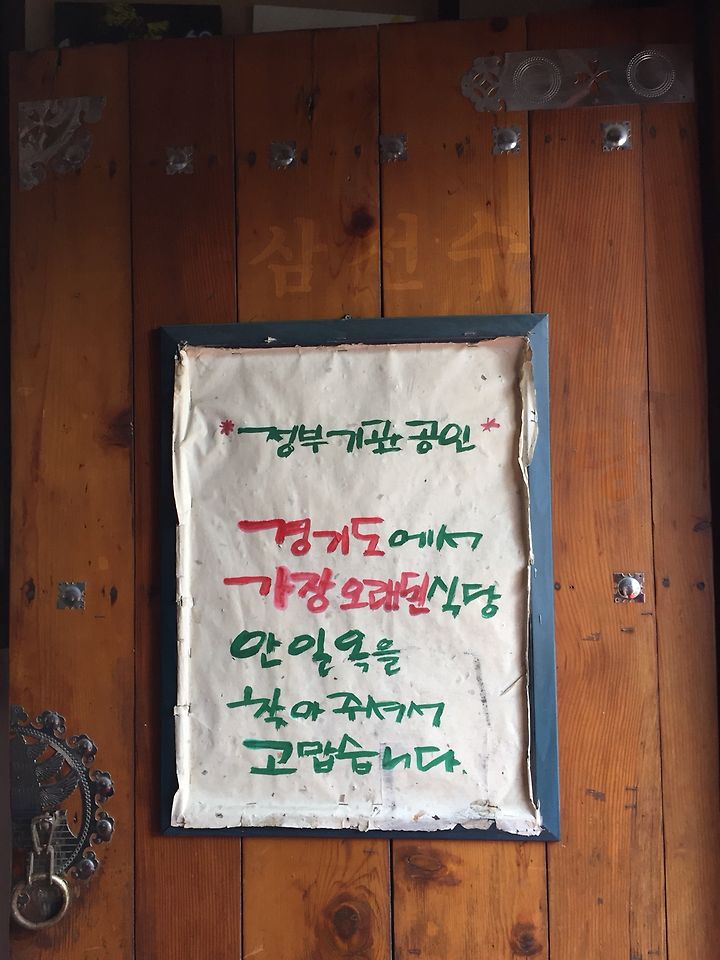 삼선수
*정부기관 공인*
경기도에서
가장 오래된 식당
안일옥을
찾아주셔서
고맙습니다.